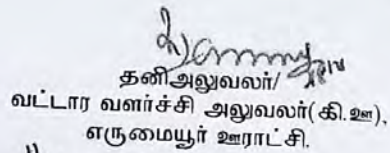 தனிஅலுவலர்/
வட்டார வளர்ச்சி அலுவலர்(கி.ஊ),
எருமையூர் ஊராட்சி.